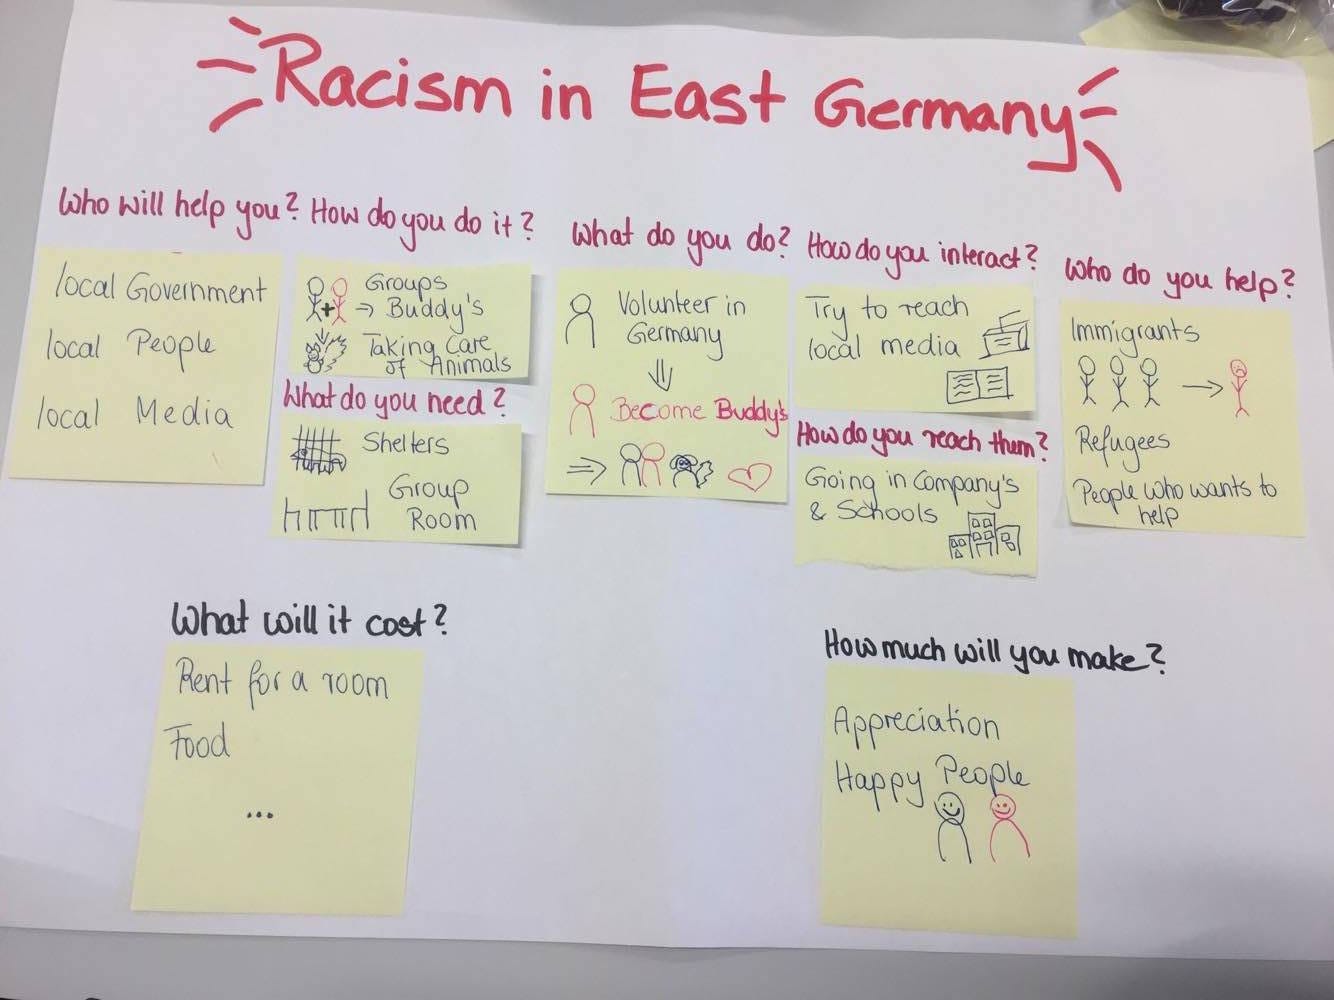 Racism in East Germany
Who will help you?
local Government
local People
local Media
How do you do it?
Groups
→ Buddy's
Taking Care
of Animals
What do you need?
Shelters
Group
Room
What do you do?
Volunteer in
Germany
Become Buddy's
How do you interact?
Try to reach
local media
How do you reach them?
Going in Company's
& Schools
Who do you help?
Immigrants
Refugees
People who wants to
help
What will it cost?
Rent for a room
Food
...
How much will you make?
Appreciation
Happy People